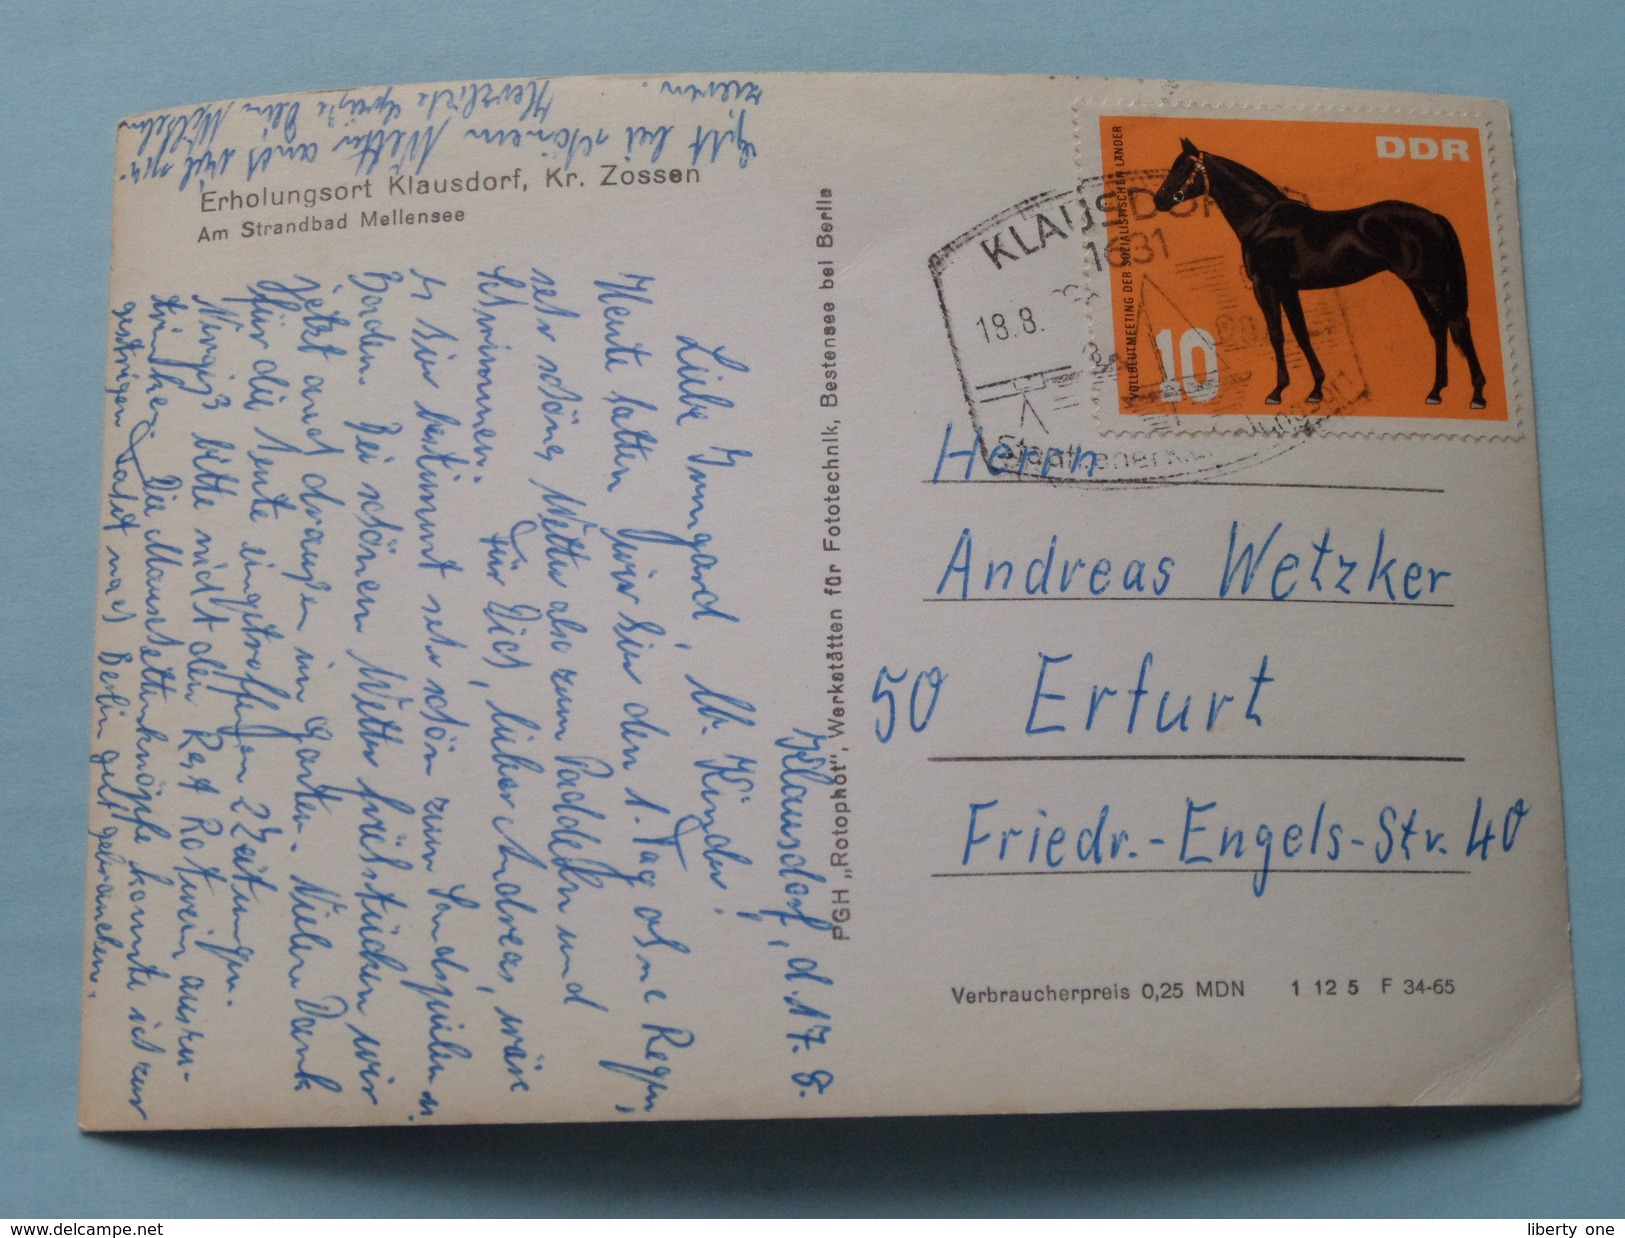 Erholungsort Klausdorf, Kr. Zossen
Am Strandbad Mellensee
Klausdorf, d. 17. 8.
Liebe Irmgard, lb. Kinder!
Heute hatten wir hier den 1. Tag ohne Regen,
sehr schönes Wetter also zum Paddeln und
Schwimmen. Für Dich, lieber Andreas, wäre
es hier bestimmt sehr schön zum Sandspielen u.
Baden. Bei schönem Wetter frühstücken wir
jetzt auch draußen im Garten. Vielen Dank
für die heute eingetroffenen 2 Zeitungen.
Vergiß bitte nicht den Rest Rotwein auszu-
trinken. Die Manschettenknöpfe konnte ich zur
gestrigen Fahrt nach Berlin gut gebrauchen.
Gilt bei schönem Wetter auch viel
zieren.
Herzliche Grüße Dein Wilhelm
PGH „Rotophot", Werkstätten für Fototechnik, Bestensee bei Berlin
DDR
VOLLBLUTMEETING DER SOZIALISTISCHEN LÄNDER
10
KLAUSDORF
1631
18.8.
Herrn
Andreas Wetzker
50 Erfurt
Friedr.-Engels-Str. 40
Verbraucherpreis 0,25 MDN 1 12 5 F 34-65
www.delcampe.net
liberty one